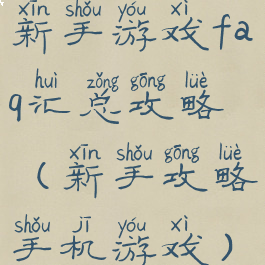 xīn shǒu yóu xì
新手游戏fa
huì zǒng gōng lüè
q汇总攻略
xīn shǒu gōng lüè
（新手攻略
shǒu jī yóu xì
手机游戏）